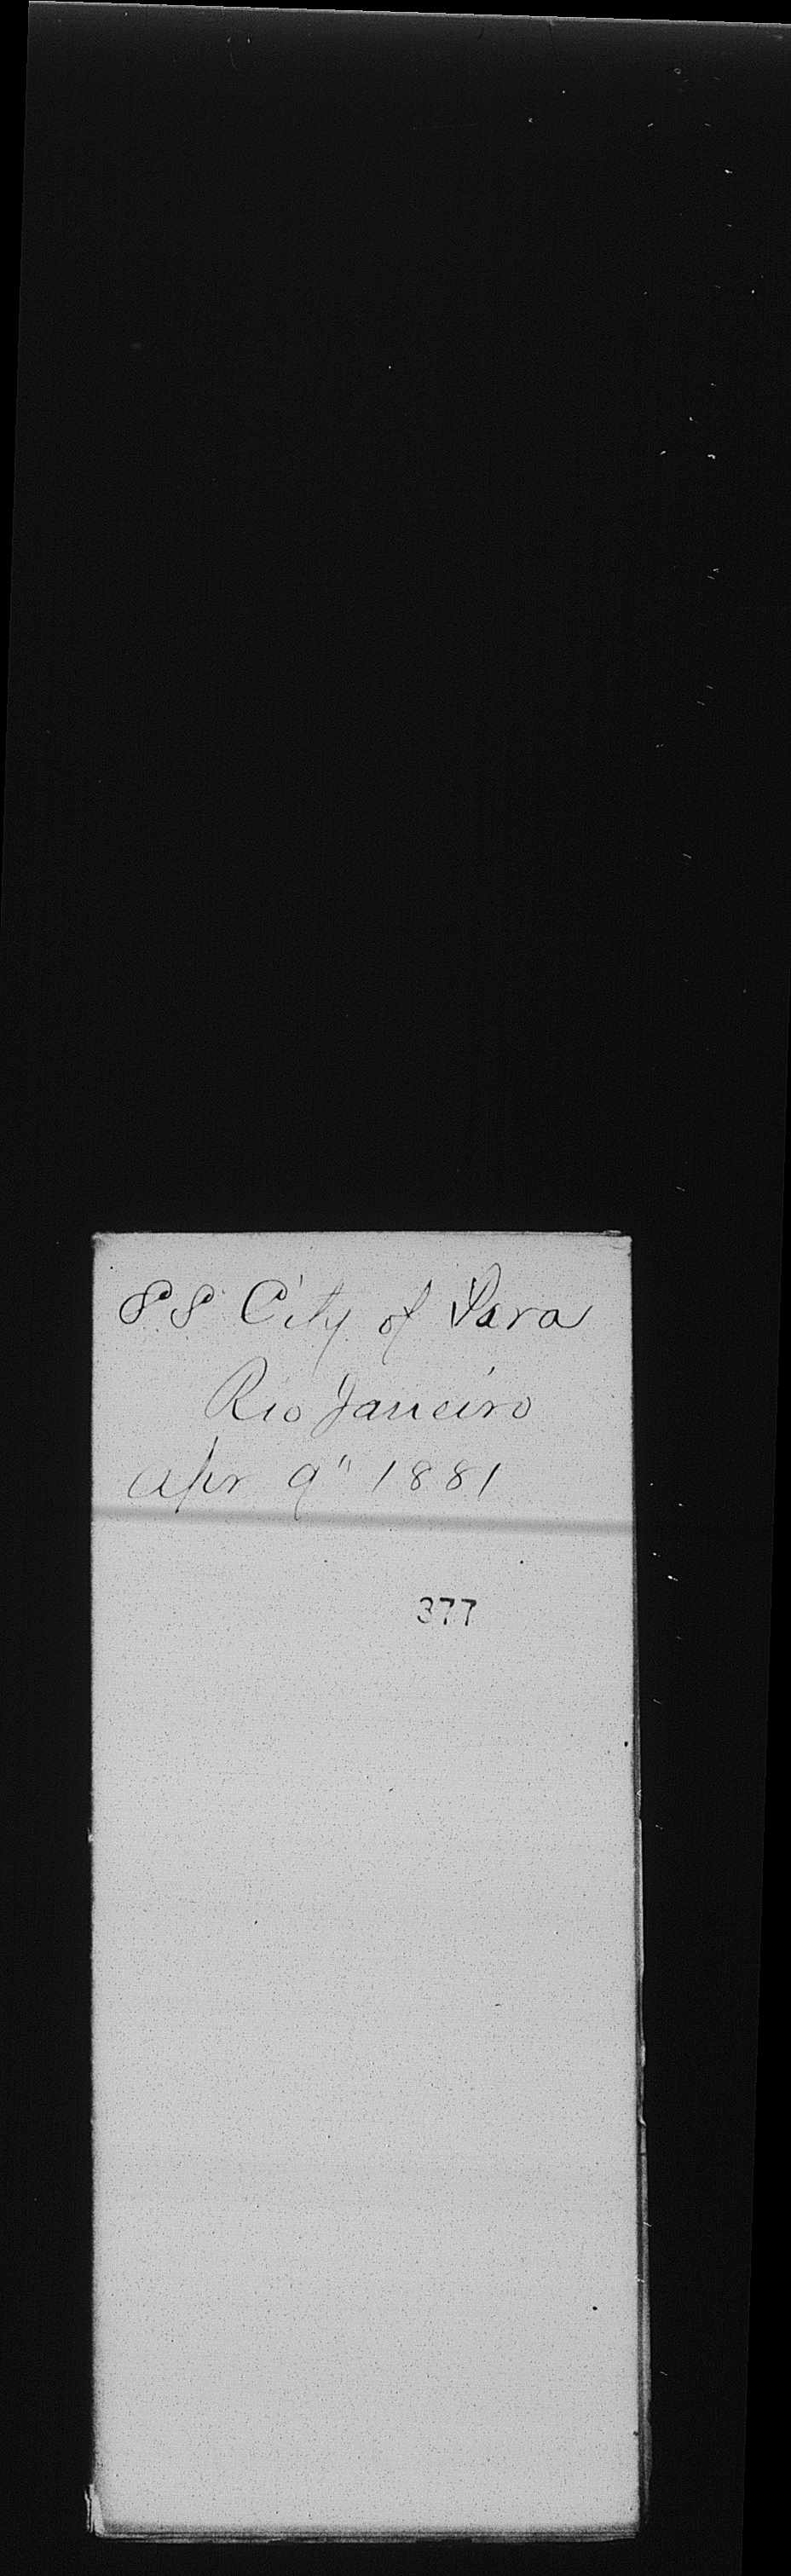 SS City of Para
Rio Janeiro
Apr 9" 1881
377